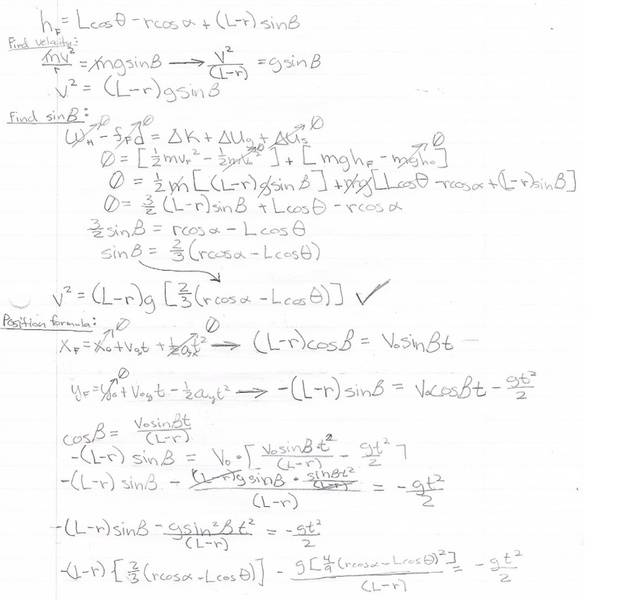 h_F = Lcosθ - rcosα + (L-r)sinβ
Find velocity:
mv²/r = mgsinβ → v²/(L-r) = gsinβ
v² = (L-r)gsinβ
Find sinβ:
W_H - f_F d = ΔK + ΔU_g + ΔU_s
0 = [½mv_F² - ½mv_o²] + [mgh_F - mgh_o]
0 = ½m[(L-r)gsinβ] + mg[Lcosθ - rcosα + (L-r)sinβ]
0 = 3/2(L-r)sinβ + Lcosθ - rcosα
3/2 sinβ = rcosα - Lcosθ
sinβ = 2/3(rcosα - Lcosθ)
v² = (L-r)g[2/3(rcosα - Lcosθ)] ✓
Position formula:
x_F = x_o + v_o t + ½a_x t² → (L-r)cosβ = v_o sinβt
y_F = y_o + v_oy t - ½a_y t² → -(L-r)sinβ = v_o cosβt - gt²/2
cosβ = v_o sinβt/(L-r)
-(L-r) sinβ = v_o · [v_o sinβ·t²/(L-r) - gt²/2]
-(L-r) sinβ - (L-r)gsinβ · sinβt²/(L-r) = -gt²/2
-(L-r)sinβ - gsin²βt²/(L-r) = -gt²/2
-(L-r)[2/3(rcosα - Lcosθ)] - g[4/9(rcosα - Lcosθ)²]/(L-r) = -gt²/2